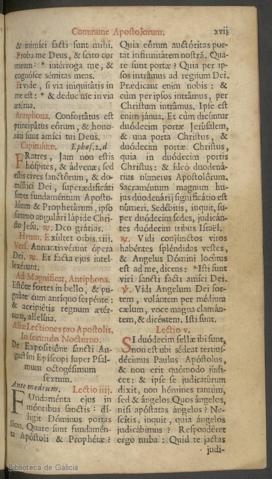 Commune Apostolorum. xvij
& inimici facti sunt mihi.
Proba me Deus, & scito cor
meum: * interroga me, &
cognosce semitas meas.
Et vide, si via iniquitatis in
me est: * & deduc me in via
æterna.
Antiphona. Confortatus est
principatus eorum, & hono-
rati sunt amici tui Deus.
Capitulum. Ephes. 2. d
FRatres, Iam non estis
hospites, & advenæ, sed
estis cives sanctorum, & do-
mestici Dei, superædificati
super fundamentum Aposto-
lorum & Prophetarum, ipso
summo angulari lapide Chri-
sto Jesu. Deo gratias.
Hymn. Exultet orbis.
Vers. Annuntiaverunt opera
Dei. Et facta ejus intel-
lexerunt.
Ad Magnificat, Antiphona.
Estote fortes in bello, & pu-
gnate cum antiquo serpente:
& accipietis regnum æter-
num, alleluia.
Aliæ Lectiones pro Apostolis.
In secundo Nocturno.
De Expositione sancti Au-
gustini Episcopi super Psal-
mum octogesimum
sextum.
Ante medium. Lectio iiij.
FUndamenta ejus in
montibus sanctis: di-
ligit Dominus portas
Sion. Quare sunt fundamen-
ta Apostoli & Prophetæ?
Quia eorum auctoritas por-
tat infirmitatem nostrã. Qua-
re sunt portæ? Quia per ip-
sos intrâmus ad regnum Dei.
Prædicant enim nobis: &
cùm per ipsos intrâmus, per
Christum intrâmus. Ipse est
enim jánua. Et cùm dicúntur
duódecim portæ Jerúsalem,
& una porta Christus, &
duódecim portæ Christus,
quia in duódecim portis
Christus: & ídeò duodená-
rius númerus Apostolórum.
Sacramentum magnum hu-
jus duodenárii significátio est
númeri. Sedébitis, inquit, su-
per duódecim sedes, judicán-
tes duódecim tribus Israël.
Vidi conjúnctos viros
habéntes spléndidas vestes,
& Angelus Dómini locútus
est ad me, dicens: * Isti sunt
viri sancti facti amíci Dei.
Vidi Angelum Dei for-
tem, volántem per médium
cælum, voce magna clamán-
tem, & dicéntem. Isti sunt.
Lectio v.
SI duódecim sellæ ibi sunt,
non est ubi sédeat tertiusdécimus Paulus Apóstolus,
& non erit quómodo júdi-
cet: & ipse se judicatúrum
dixit, non hómines tantùm,
sed & ángelos. Quos ángelos,
nisi apóstatas ángelos? Ne-
scítis, inquit, quia ángelos
judicábimus? Respondéret
ergo turba: Quid te jactas
judi-
Biblioteca de Galicia